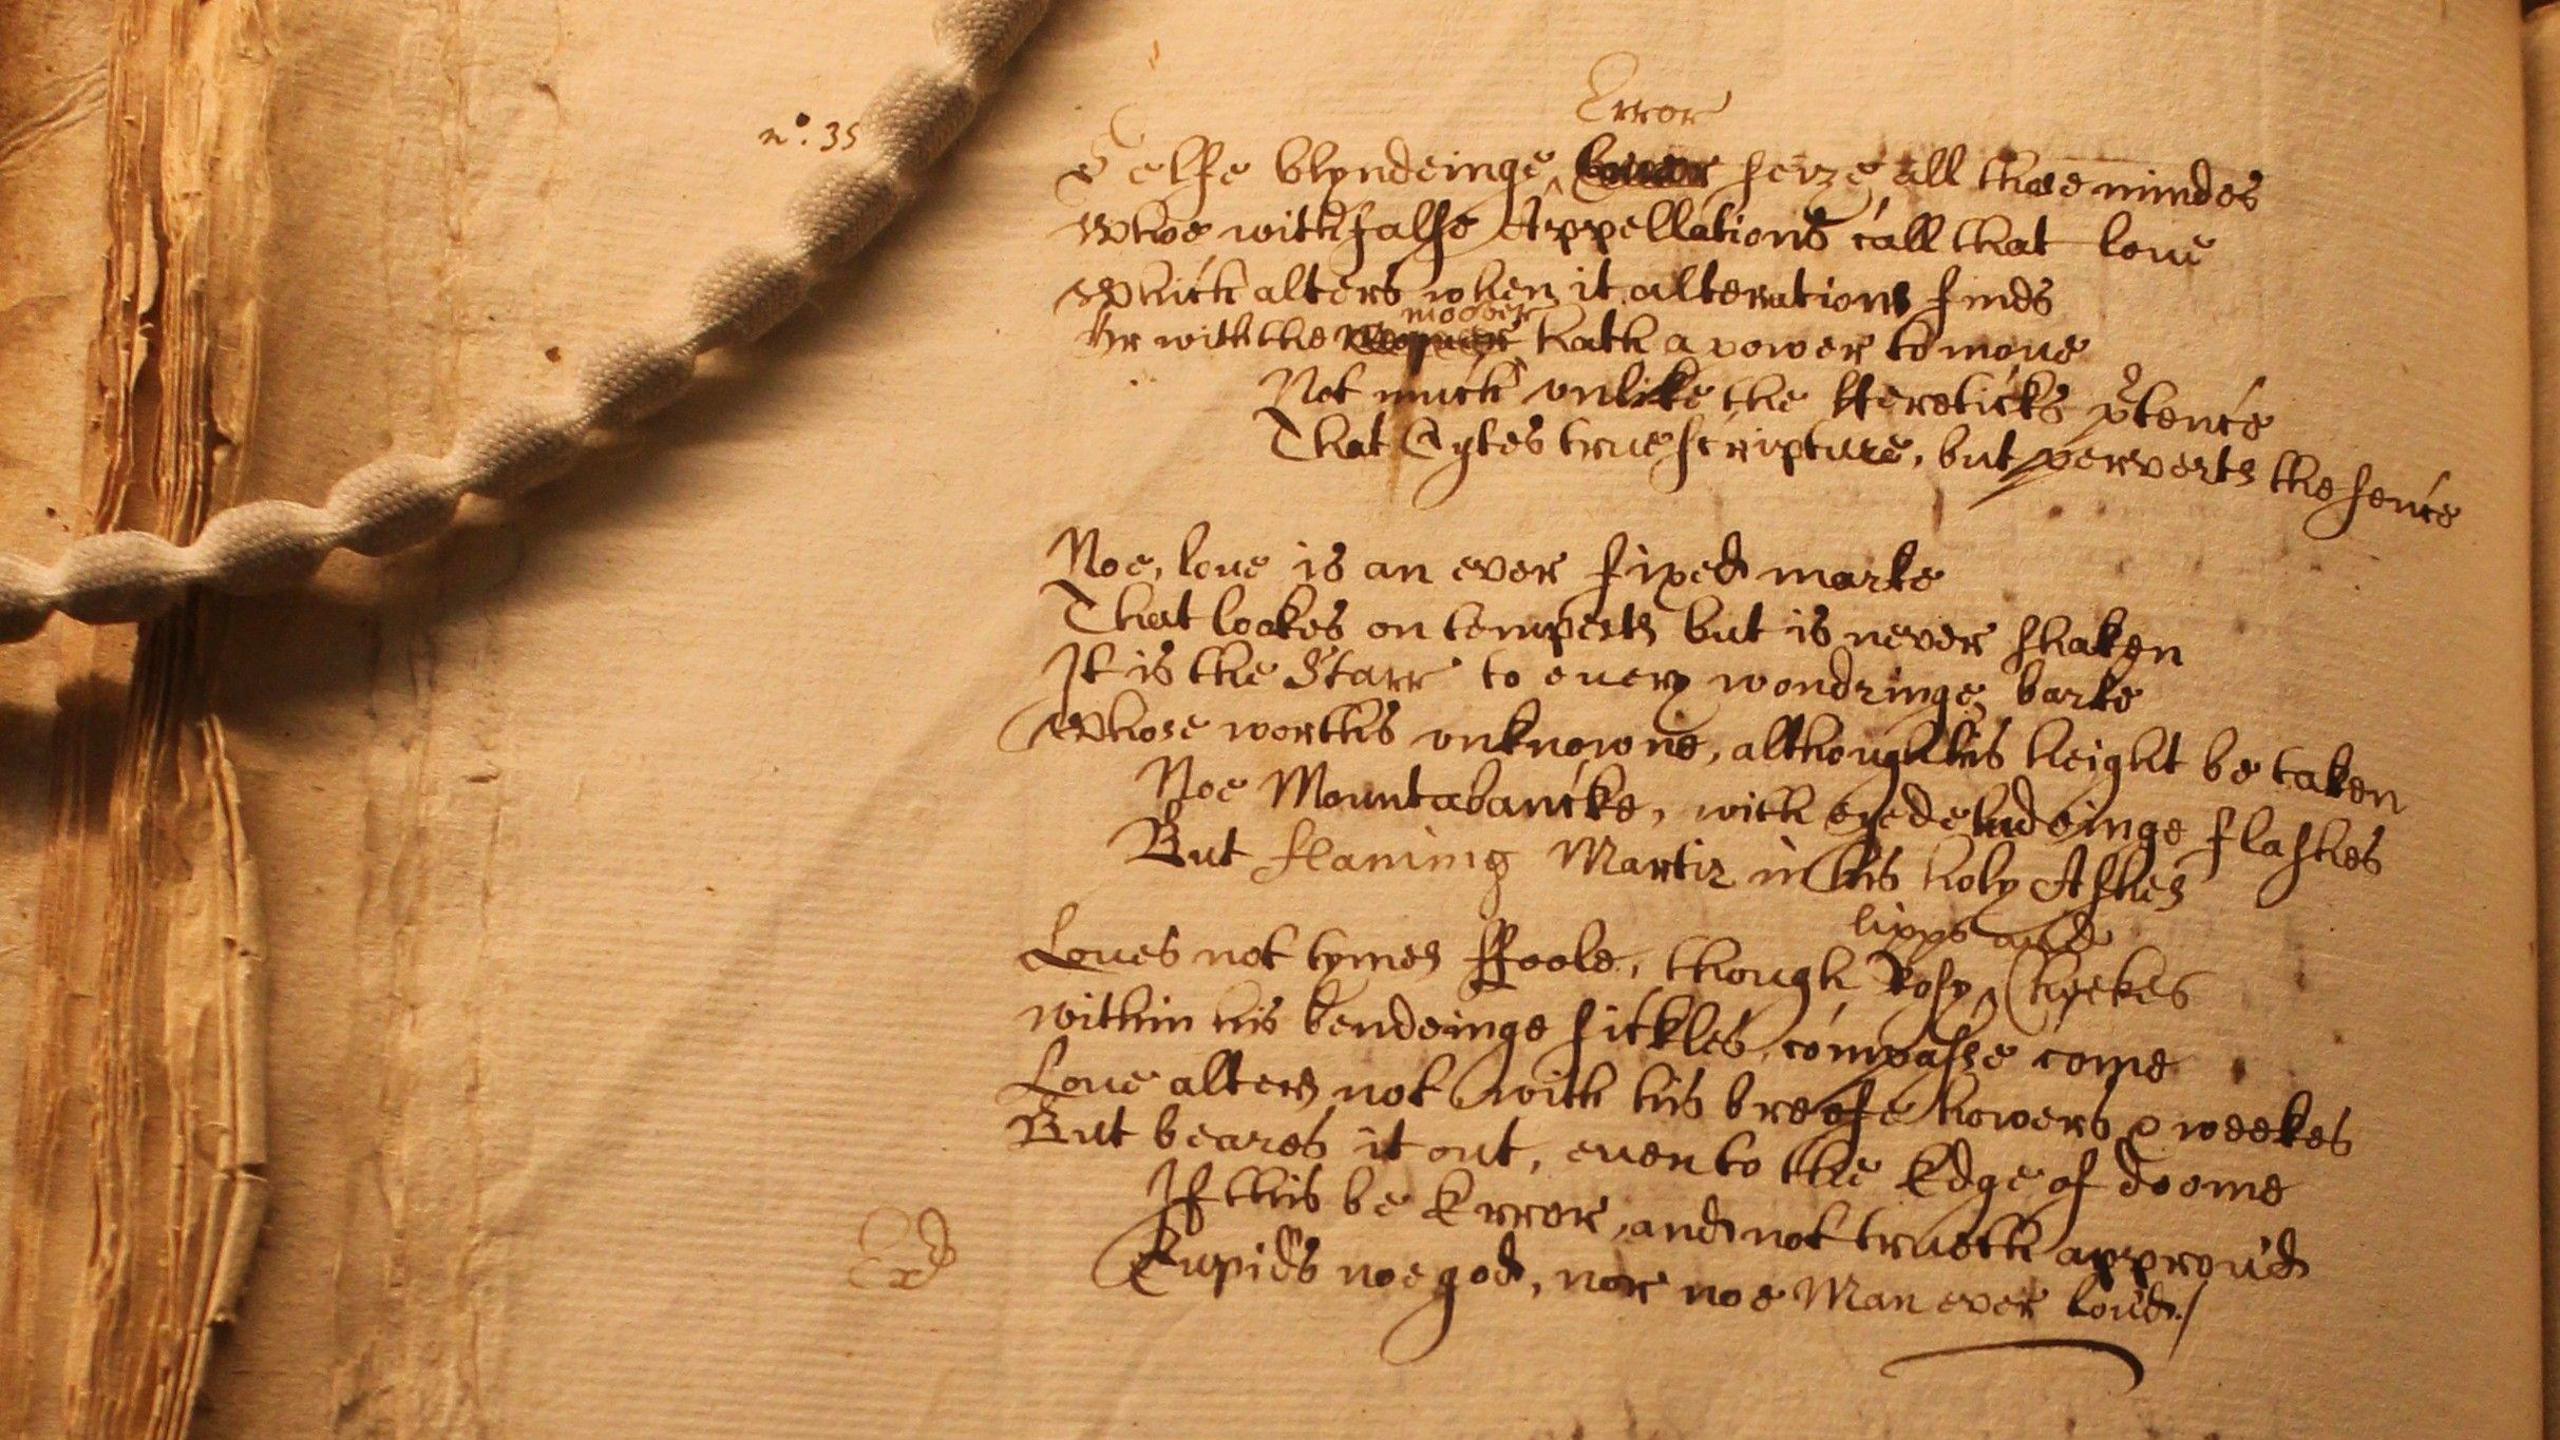 Error
n°. 35
Selfe blyndeinge seize all those mindes
Whoe with falfe Appellations call that loue
Which alters when it alterations finds
moover
Or with the hath a power to moue
Not much vnlike the Hereticks ptence
That Cytes true scripture, but perverts the sence
Noe, loue is an ever fixed marke
That lookes on tempests but is never shaken
It is the Starr to euery wondringe barke
Whose worths vnknowne, although his height be taken
Noe Mountabancke, with eyedeludeinge flashes
But flaming Martir in his holy Ashes
lipps and
Loues not tymes ffoole, though Rosy Cheekes
within his bendeinge sickles compasse come
Loue alters not with his breefe howers & weekes
But beares it out, euen to the Edge of doome
If this be Error, and not trueth approu'd
Cupids noe god, nor noe Man ever lou'd./